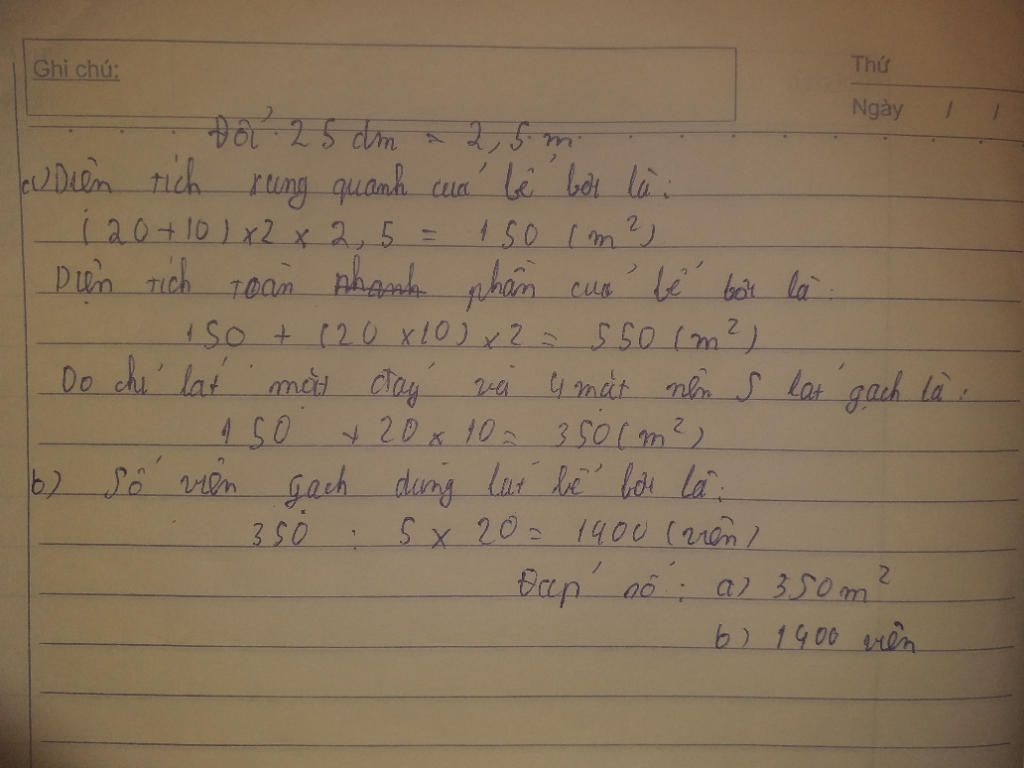 Ghi chú:
Thứ
Ngày / /
Đổi 25 dm = 2,5 m
a) Diện tích xung quanh của bể bơi là:
(20+10) x2 x 2,5 = 150 (m²)
Diện tích toàn nhanh phần của bể bơi là:
150 + (20 x10) x2 = 550 (m²)
Do chỉ lát mặt đáy và 4 mặt nên S lát gạch là:
150 + 20 x 10 = 350 (m²)
b) Số viên gạch dùng lát bể bơi là:
350 : 5 x 20 = 1400 (viên)
Đáp số: a) 350 m²
b) 1400 viên